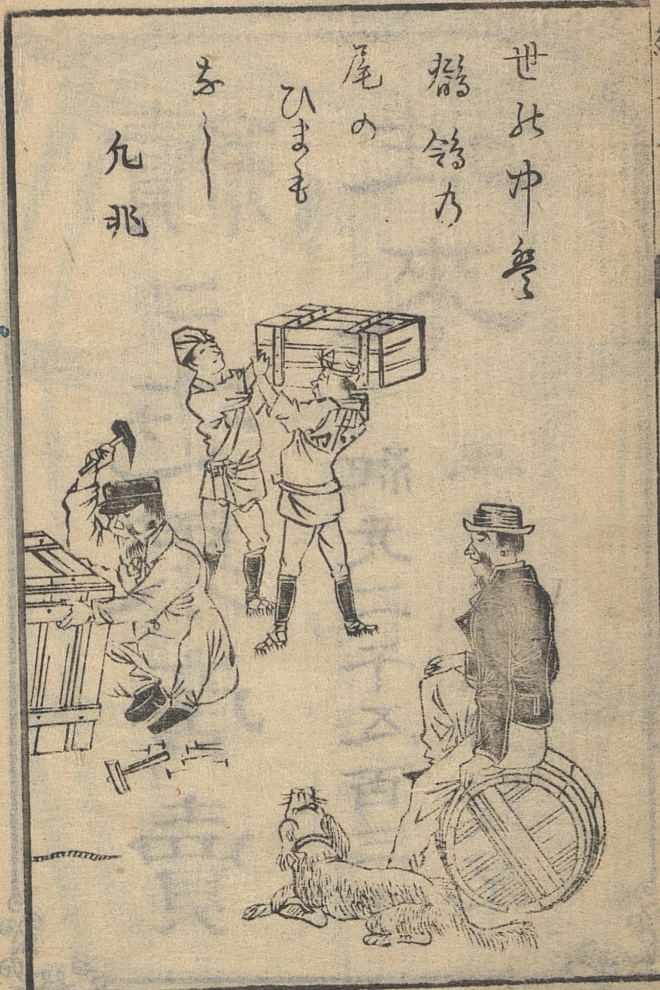 世の中は
鶺鴒の
尾の
ひまも
なし
凡兆